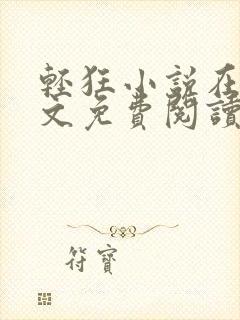 輕狂小說在
文免費閱讀
符寶